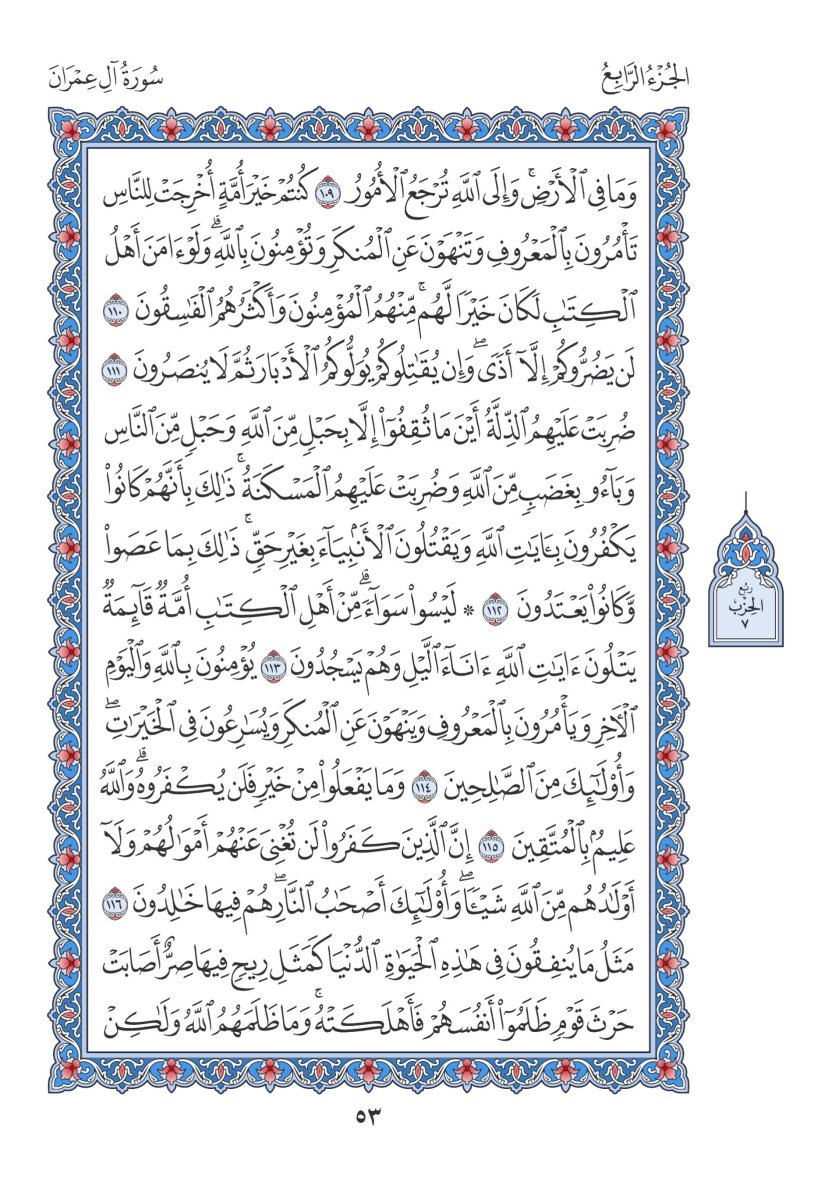 الجُزْءُ الرَّابِعُ
سُورَةُ آلِ عِمْرَانَ
وَمَا فِي ٱلْأَرْضِۚ وَإِلَى ٱللَّهِ تُرْجَعُ ٱلْأُمُورُ ١٠٩ كُنتُمْ خَيْرَ أُمَّةٍ أُخْرِجَتْ لِلنَّاسِ
تَأْمُرُونَ بِٱلْمَعْرُوفِ وَتَنْهَوْنَ عَنِ ٱلْمُنكَرِ وَتُؤْمِنُونَ بِٱللَّهِۗ وَلَوْ ءَامَنَ أَهْلُ
ٱلْكِتَٰبِ لَكَانَ خَيْرًا لَّهُمۚ مِّنْهُمُ ٱلْمُؤْمِنُونَ وَأَكْثَرُهُمُ ٱلْفَٰسِقُونَ ١١٠
لَن يَضُرُّوكُمْ إِلَّآ أَذًىۖ وَإِن يُقَٰتِلُوكُمْ يُوَلُّوكُمُ ٱلْأَدْبَارَ ثُمَّ لَا يُنصَرُونَ ١١١
ضُرِبَتْ عَلَيْهِمُ ٱلذِّلَّةُ أَيْنَ مَا ثُقِفُوٓا۟ إِلَّا بِحَبْلٍ مِّنَ ٱللَّهِ وَحَبْلٍ مِّنَ ٱلنَّاسِ
وَبَآءُو بِغَضَبٍ مِّنَ ٱللَّهِ وَضُرِبَتْ عَلَيْهِمُ ٱلْمَسْكَنَةُۚ ذَٰلِكَ بِأَنَّهُمْ كَانُوا۟
يَكْفُرُونَ بِـَٔايَٰتِ ٱللَّهِ وَيَقْتُلُونَ ٱلْأَنۢبِيَآءَ بِغَيْرِ حَقٍّۚ ذَٰلِكَ بِمَا عَصَوا۟
وَّكَانُوا۟ يَعْتَدُونَ ١١٢ * لَيْسُوا۟ سَوَآءًۗ مِّنْ أَهْلِ ٱلْكِتَٰبِ أُمَّةٌ قَآئِمَةٌ
يَتْلُونَ ءَايَٰتِ ٱللَّهِ ءَانَآءَ ٱلَّيْلِ وَهُمْ يَسْجُدُونَ ١١٣ يُؤْمِنُونَ بِٱللَّهِ وَٱلْيَوْمِ
ٱلْـَٔاخِرِ وَيَأْمُرُونَ بِٱلْمَعْرُوفِ وَيَنْهَوْنَ عَنِ ٱلْمُنكَرِ وَيُسَٰرِعُونَ فِي ٱلْخَيْرَٰتِۖ
وَأُو۟لَٰٓئِكَ مِنَ ٱلصَّٰلِحِينَ ١١٤ وَمَا يَفْعَلُوا۟ مِنْ خَيْرٍ فَلَن يُكْفَرُوهُۗ وَٱللَّهُ
عَلِيمٌۢ بِٱلْمُتَّقِينَ ١١٥ إِنَّ ٱلَّذِينَ كَفَرُوا۟ لَن تُغْنِيَ عَنْهُمْ أَمْوَٰلُهُمْ وَلَآ
أَوْلَٰدُهُم مِّنَ ٱللَّهِ شَيْـًٔاۖ وَأُو۟لَٰٓئِكَ أَصْحَٰبُ ٱلنَّارِۖ هُمْ فِيهَا خَٰلِدُونَ ١١٦
مَثَلُ مَا يُنفِقُونَ فِي هَٰذِهِ ٱلْحَيَوٰةِ ٱلدُّنْيَا كَمَثَلِ رِيحٍ فِيهَا صِرٌّ أَصَابَتْ
حَرْثَ قَوْمٍ ظَلَمُوٓا۟ أَنفُسَهُمْ فَأَهْلَكَتْهُۚ وَمَا ظَلَمَهُمُ ٱللَّهُ وَلَٰكِنْ
رُبُع
الحِزْب
٧
٥٣